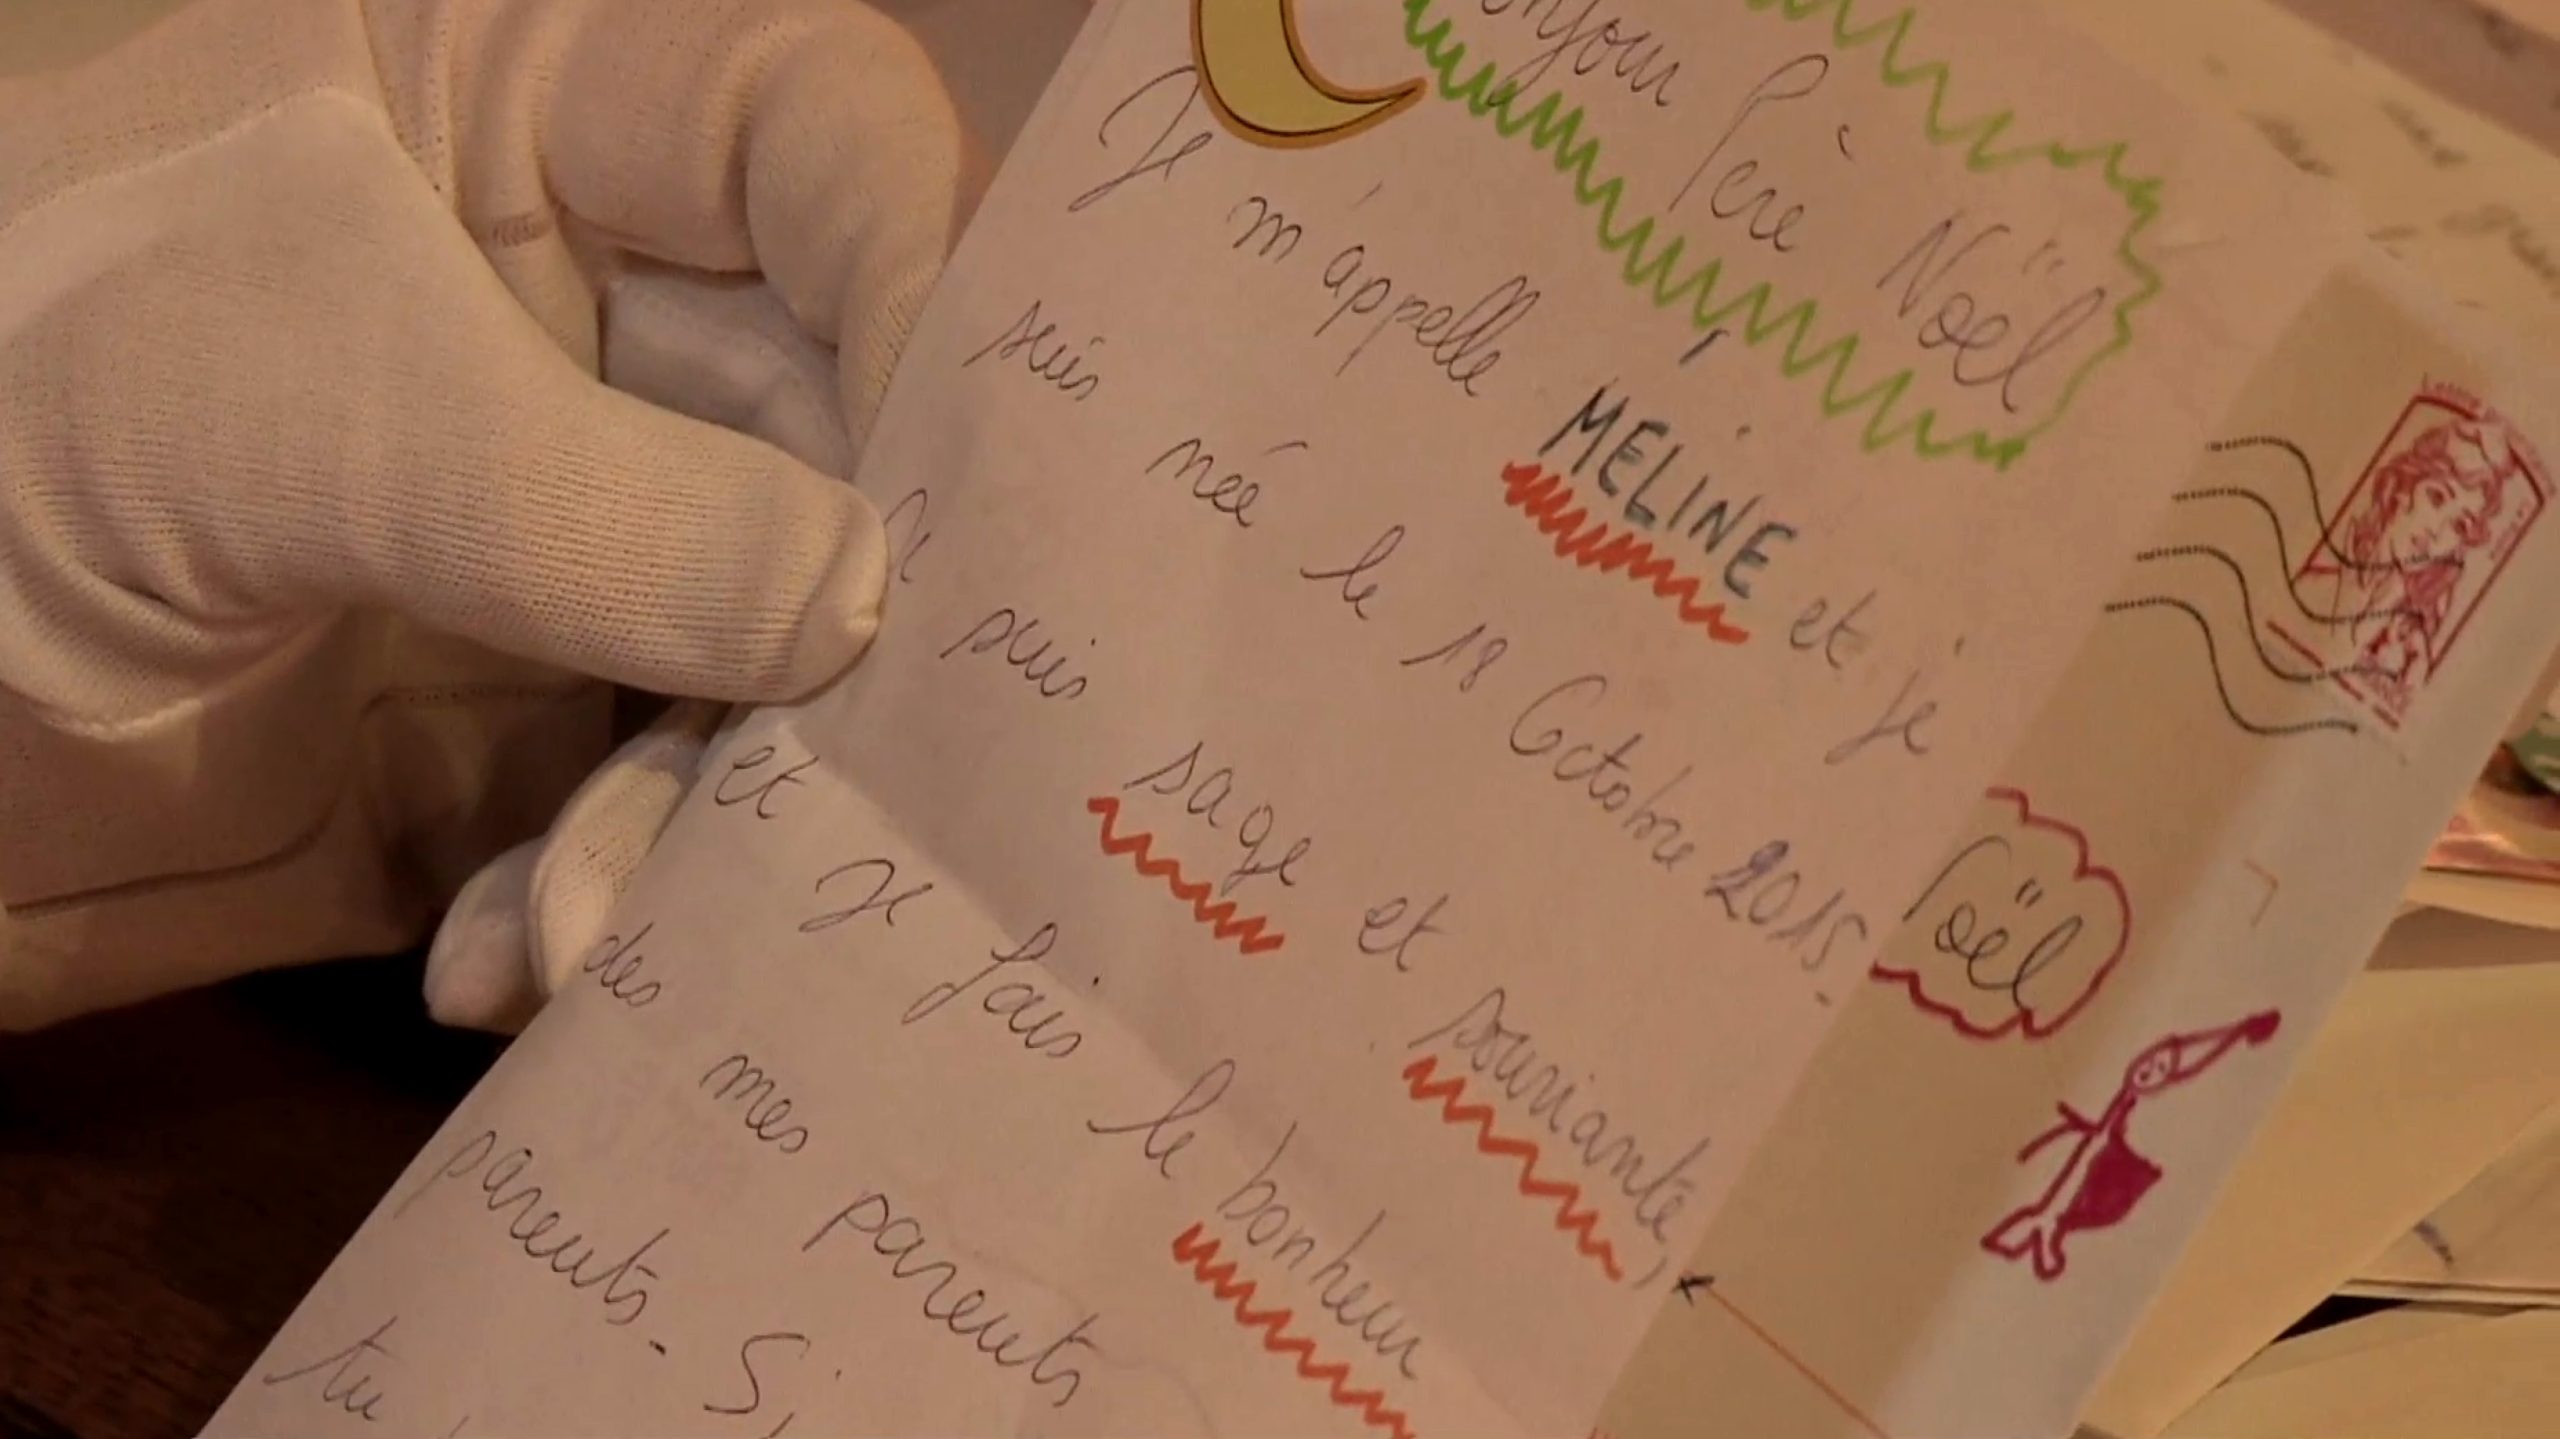 onjour Père Noël
Je m'appelle MÉLINE et je
suis née le 18 Octobre 2015.
Je suis sage et souriante,
et Je fais le bonheur
des mes parents
parents. Si
tu
oël